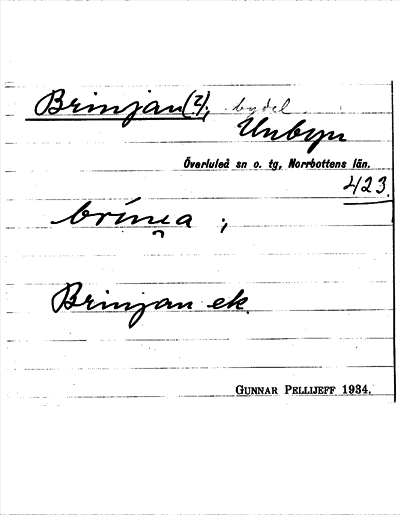 Brinjan(?); bydel
Unbyn
Överluleå sn o. tg, Norrbottens län.
423.
bríni̯a ;
Brinjan ek.
GUNNAR PELLIJEFF 1934.